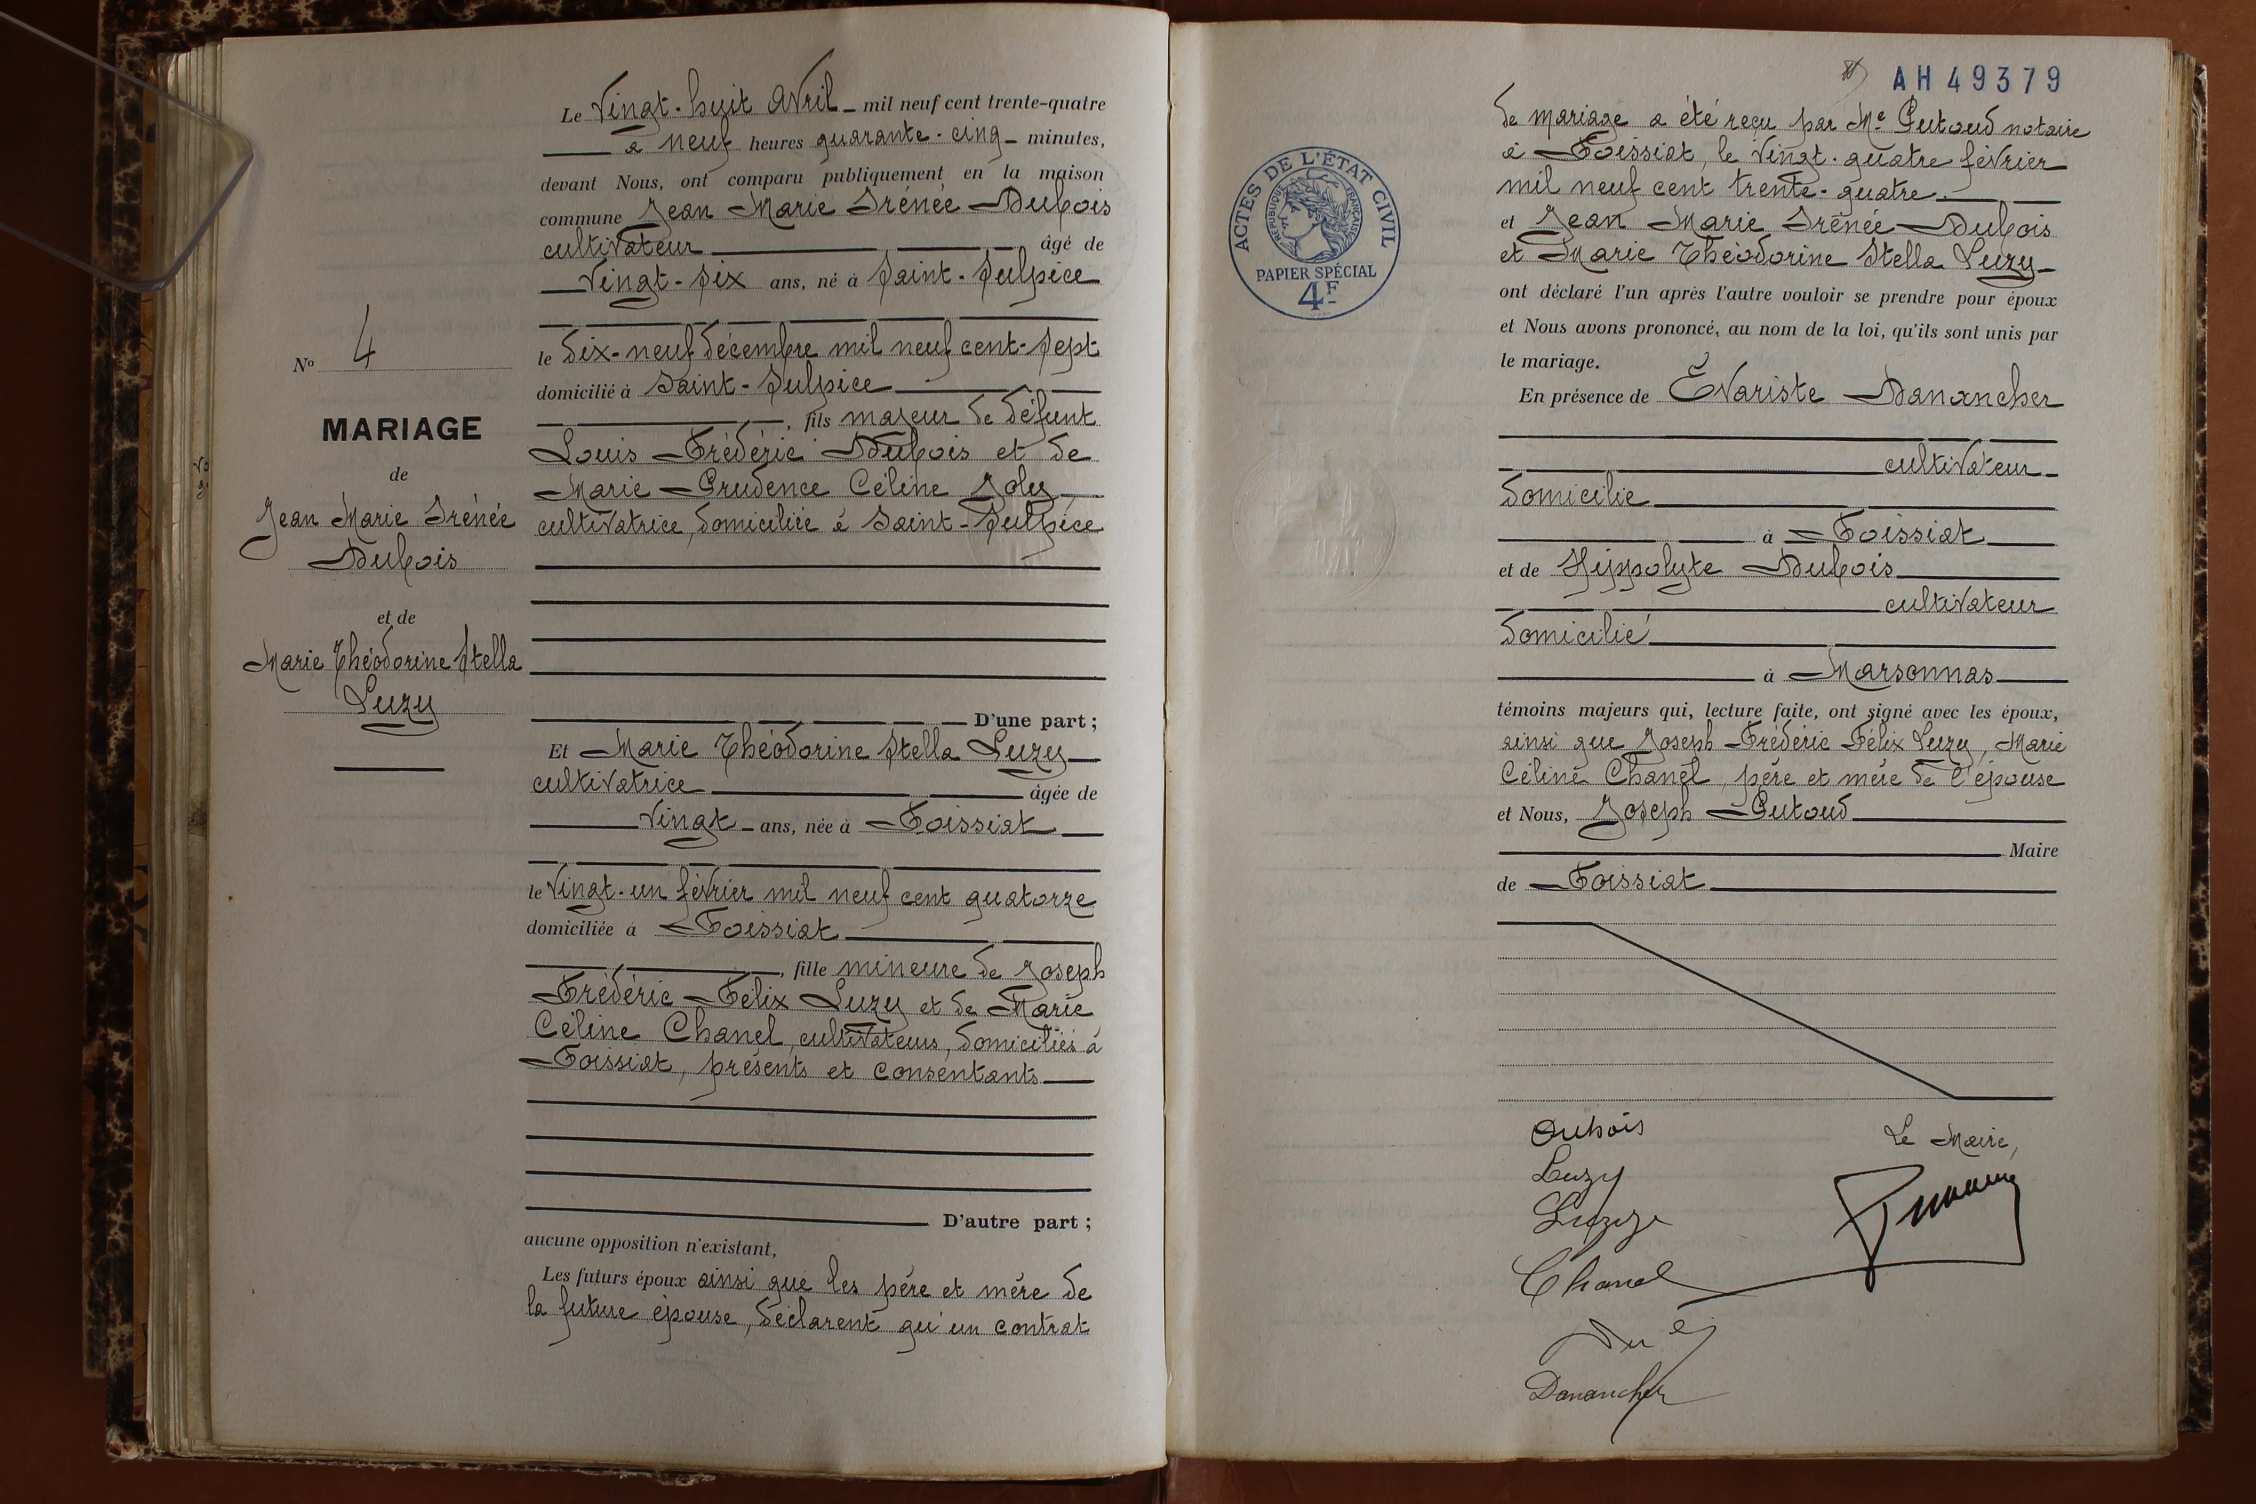 Le Vingt-huit Avril mil neuf cent trente-quatre
à neuf heures quarante-cinq minutes,
devant Nous, ont comparu publiquement en la maison
commune Jean Marie Irénée Dubois
cultivateur âgé de
Vingt-six ans, né à Saint-Sulpice
le dix-neuf décembre mil neuf cent-sept
domicilié à Saint-Sulpice
, fils majeur de défunt
Louis Frédéric Dubois et de
Marie Prudence Céline Joly
cultivatrice, domiciliée à Saint-Sulpice
No 4
MARIAGE
de
Jean Marie Irénée
Dubois
et de
Marie Théodorine Stella
Luzy
D'une part ;
Et Marie Théodorine Stella Luzy
cultivatrice âgée de
Vingt ans, née à Foissiat
le Vingt-un février mil neuf cent quatorze
domiciliée à Foissiat
, fille mineure de Joseph
Frédéric Félix Luzy et de Marie
Céline Chanel, cultivateurs, domiciliés à
Foissiat, présents et consentants
D'autre part ;
aucune opposition n'existant,
Les futurs époux ainsi que les père et mère de
la future épouse, déclarent qu'un contrat
AH 49379
de mariage a été reçu par Me Putoud notaire
à Foissiat, le Vingt-quatre février
mil neuf cent trente-quatre.
et Jean Marie Irénée Dubois
et Marie Théodorine Stella Luzy
ont déclaré l'un après l'autre vouloir se prendre pour époux
et Nous avons prononcé, au nom de la loi, qu'ils sont unis par
le mariage.
En présence de Évariste Danancher
cultivateur
domicilié
à Foissiat
et de Hyppolyte Dubois
cultivateur
domicilié
à Marsonnas
témoins majeurs qui, lecture faite, ont signé avec les époux,
ainsi que Joseph Frédéric Félix Luzy, Marie
Céline Chanel, père et mère de l'épouse
et Nous, Joseph Putoud
Maire
de Foissiat
ACTES DE L'ÉTAT CIVIL
RÉPUBLIQUE FRANÇAISE
PAPIER SPÉCIAL
4F
Dubois
Luzy
Luzy
Chanel
Danancher
Le Maire,